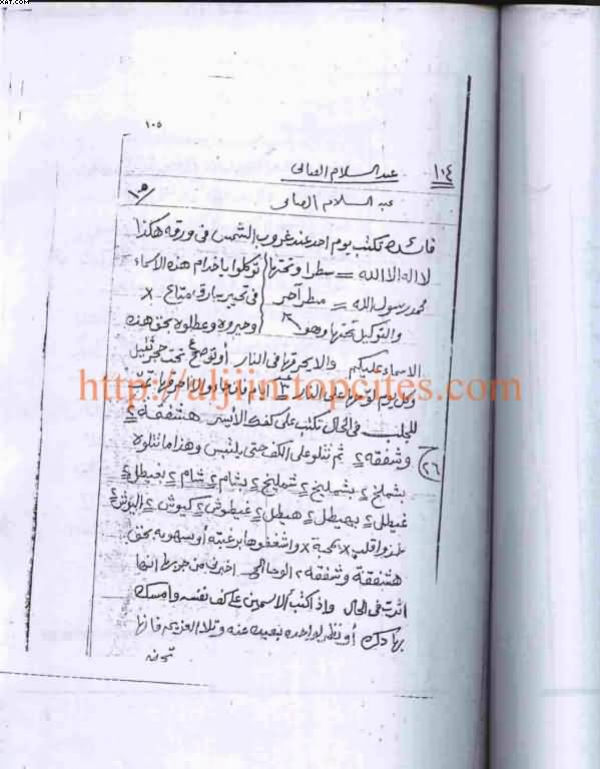 XAT.COM
١٠٥
١٠٤ عبد السلام الفالى
عبد السلام الفالى ١٠٥
فائدة تكتب يوم احد عند غروب الشمس فى ورقه هكذا
لا اله الا الله = سطرا وتحتها توكلوا ياخدام هذه الاسماء
محمد رسول الله = سطر آخر فى تحيير سارق متاع x
والتوكيل تحتها وهو وحيروه وعطلوه بحق هذه
الاسماء عليكم والا يحرقها فى النار أو توضع تحت حجر ثقيل
http://aljiin.topcites.com
وكل يوم على النار ١٣ الايام
٢٦ للجلب فى الحال تكتب على كفك الأيسر هشفقه ٤
وشفقه ٤ ثم تتلو على الكف حتى يلتبس وهذا ما تتلوه
بشملخ ٤ بشمليخ ٤ شمليخ ٤ بشام ٤ شام ٤ بغيطل ٤
غيطل ٤ بهيطل ٤ هيطل ٤ غيطوش ٤ كيوش ٤ البوش ٤
قلب x بمحبة x واشغفوها برغبته أو بحق
هشفقة وشفقه ٢ الوحا اخبرنى من جربها انها
اثرت فى الحال واذ اكتب الاسمين على كف نفسه وامسك
بها أو نظر لواحده بعيده عنه وتلا العزيمه فانها